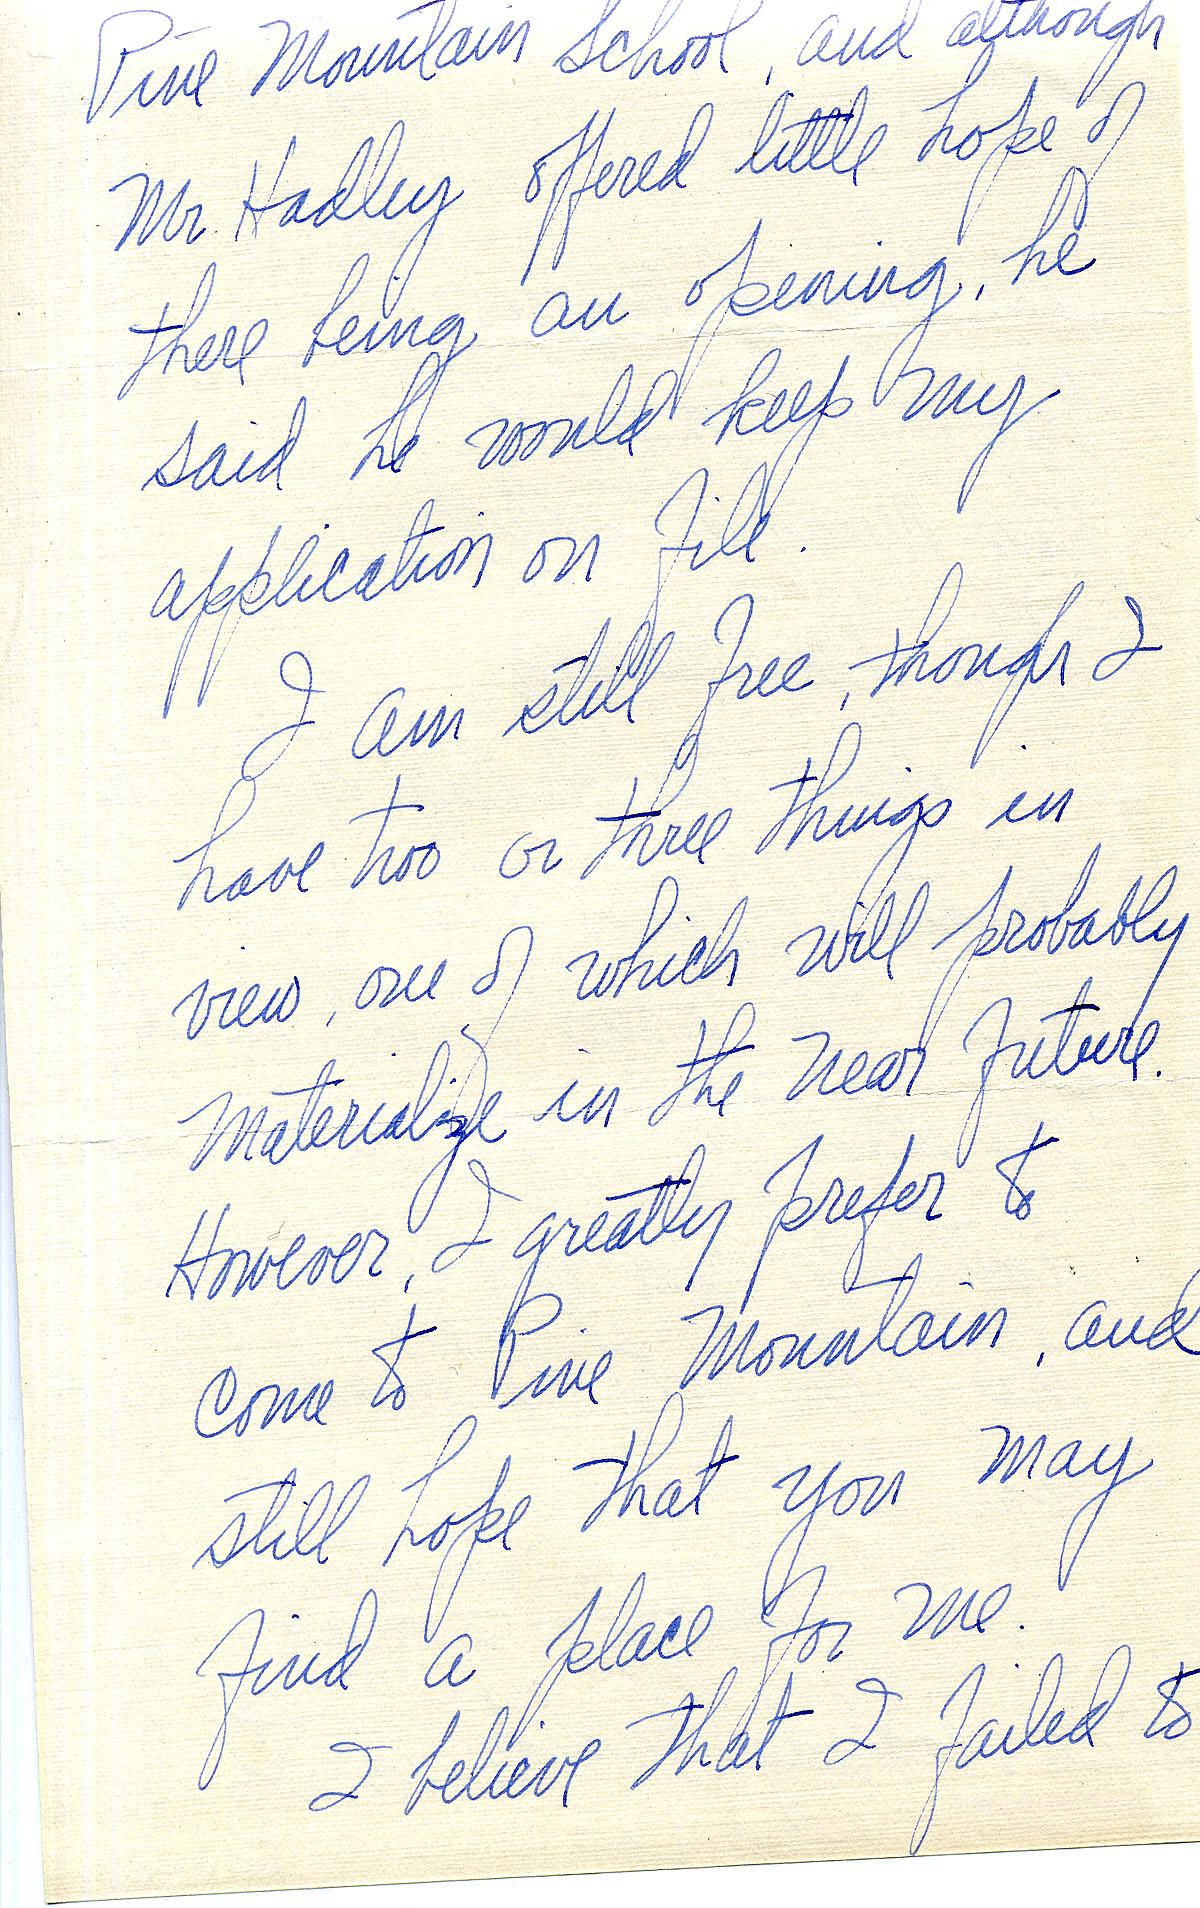 Pine Mountain School, and although
Mr. Hadley offered little hope of
there being an opening, he
said he would keep my
application on file.
I am still free, though I
have two or three things in
view, one of which will probably
materialize in the near future.
However, I greatly prefer to
come to Pine Mountain, and
still hope that you may
find a place for me.
I believe that I failed to